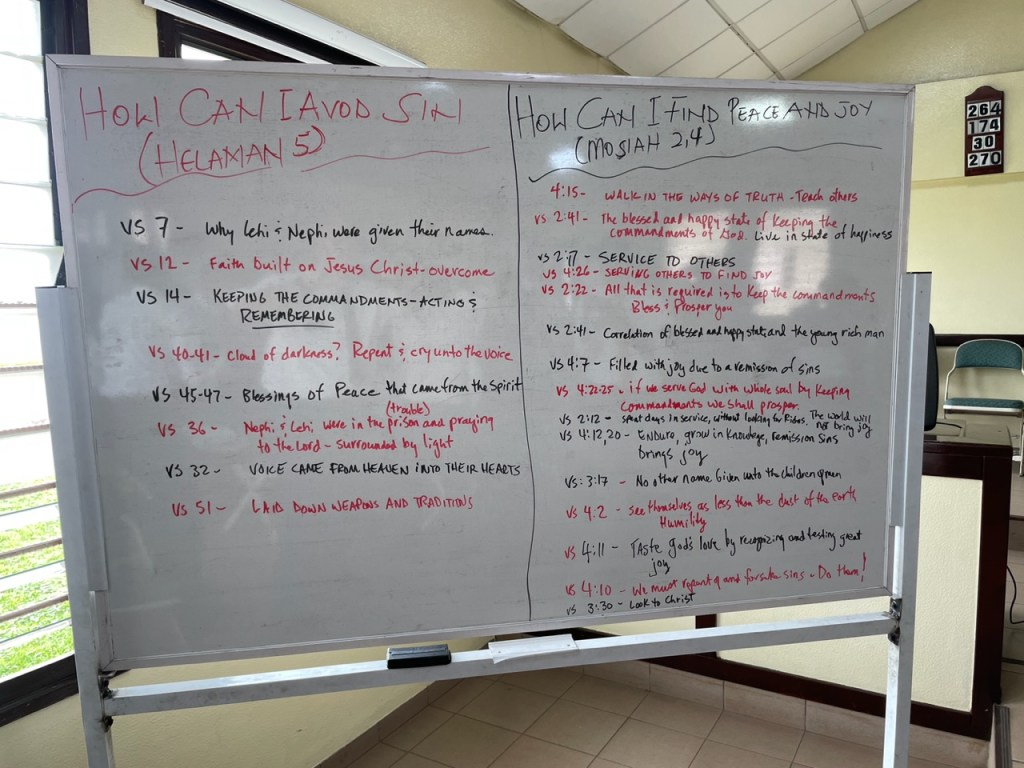 HOW CAN I AVOD SIN
(HELAMAN 5)
VS 7 - Why Lehi & Nephi were given their names.
VS 12 - Faith built on Jesus Christ - overcome
VS 14 - KEEPING THE COMMANDMENTS - ACTING &
REMEMBERING
VS 40-41 - Cloud of darkness? Repent & cry unto the voice
VS 45-47 - Blessings of Peace that came from the Spirit
(trouble)
VS 36 - Nephi & Lehi were in the prison and praying
to the Lord - surrounded by light
VS 32 - VOICE CAME FROM HEAVEN INTO THEIR HEARTS
VS 51 - LAID DOWN WEAPONS AND TRADITIONS
HOW CAN I FIND PEACE AND JOY
(MOSIAH 2,4)
4:15 - WALK IN THE WAYS OF TRUTH - Teach others
VS 2:41 - The blessed and happy state of Keeping the
commandments of GOD. Live in state of happiness
VS 2:17 - SERVICE TO OTHERS
VS 4:26 - SERVING OTHERS TO FIND JOY
VS 2:22 - All that is required is to Keep the commandments
Bless & Prosper you
VS 2:41 - Correlation of blessed and happy state and the young rich man
VS 4:7 - Filled with joy due to a remission of sins
VS 4:21-25 - if we serve God with whole soul by Keeping
Commandments we shall prosper.
VS 2:12 - spent days in service, without looking for Riches. The world will
not bring joy
VS 4:12,20 - Endure, grow in Knowledge, remission sins
brings joy
VS: 3:17 - No other name Given unto the children of men
VS 4:2 - see themselves as less then the dust of the earth
Humility
VS 4:11 - TASTE God's love by recognizing and testing great
joy
VS 4:10 - We must repent and forsake sins - Do them!
VS 3:30 - Look to Christ
264
174
30
270